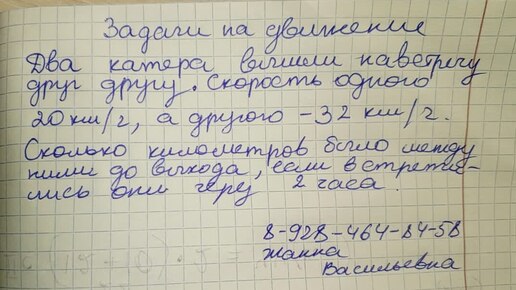 Задачи на движение
Два катера вышли навстречу
друг другу. Скорость одного
20 км/г, а другого - 32 км/г.
Сколько километров было между
ними до выхода, если встрети-
лись они через 2 часа.
8-928-464-84-58
Жанна
Васильевна